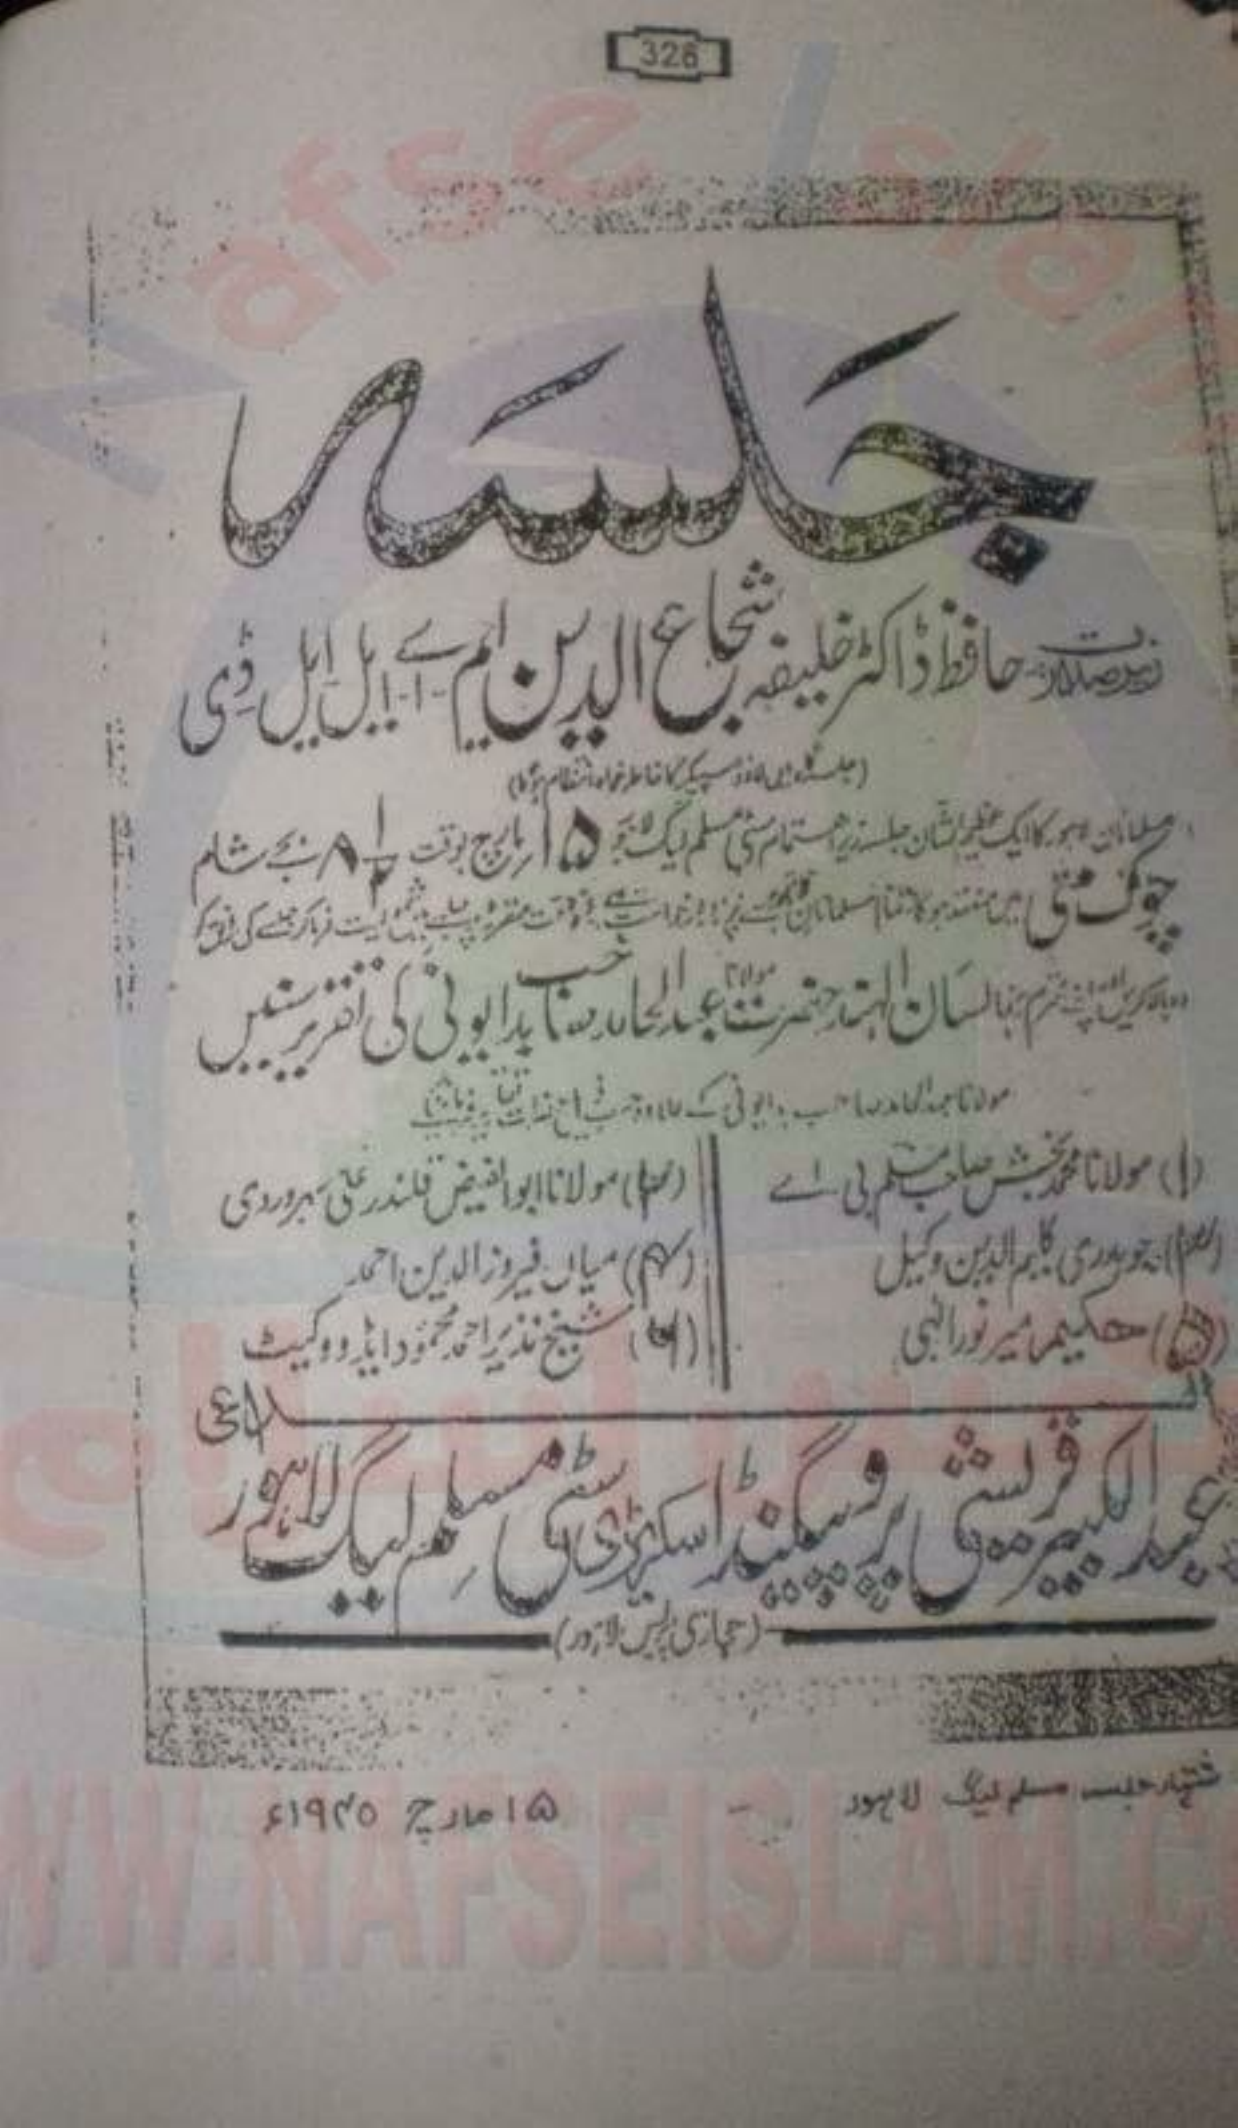 326
جلسہ
زیر صدارت حافظ ڈاکٹر خلیفہ شجاع الدین ایم-اے-ایل-ایل ڈی
(جلسہ گاہ میں لاؤڈ سپیکر کا خاطر خواہ انتظام ہوگا)
مسلمانان لاہور کا ایک عظیم الشان جلسہ زیر اہتمام سٹی مسلم لیگ لاہور ۱۵ مارچ بوقت ۸ ۱/۲ بجے شام
چوک متی میں منعقد ہوگا تمام مسلمانان لاہور سے پرزور درخواست ہے وقت مقررہ پر جلسے میں شمولیت فرما کر جلسے کی رونق کو
دوبالا کریں اور اپنے محترم رہنما لسان الہند حضرت مولانا عبدالحامد صاحب بدایونی کی تقریر سنیں
مولانا عبدالحامد صاحب بدایونی کے علاوہ حسب ذیل حضرات تقاریر فرمائیں گے
(۱) مولانا محمد بخش صاحب مسلم بی اے
(۲) مولانا ابوالفیض قلندر علی سہروردی
(۳) چوہدری کلیم الدین وکیل
(۴) میاں فیروزالدین احمد
(۵) حکیم میر نور الہی
(۶) شیخ نذیر احمد محمود ایڈووکیٹ
الداعی
عبدالکبیر قریشی پروپیگنڈا سکرٹری سٹی مسلم لیگ لاہور
(حجازی پریس لاہور)
اشتہار جلسہ مسلم لیگ لاہور - ۱۵ مارچ ۱۹۴۵ء
Nafse Islam
نفس اسلام
WWW.NAFSEISLAM.CO